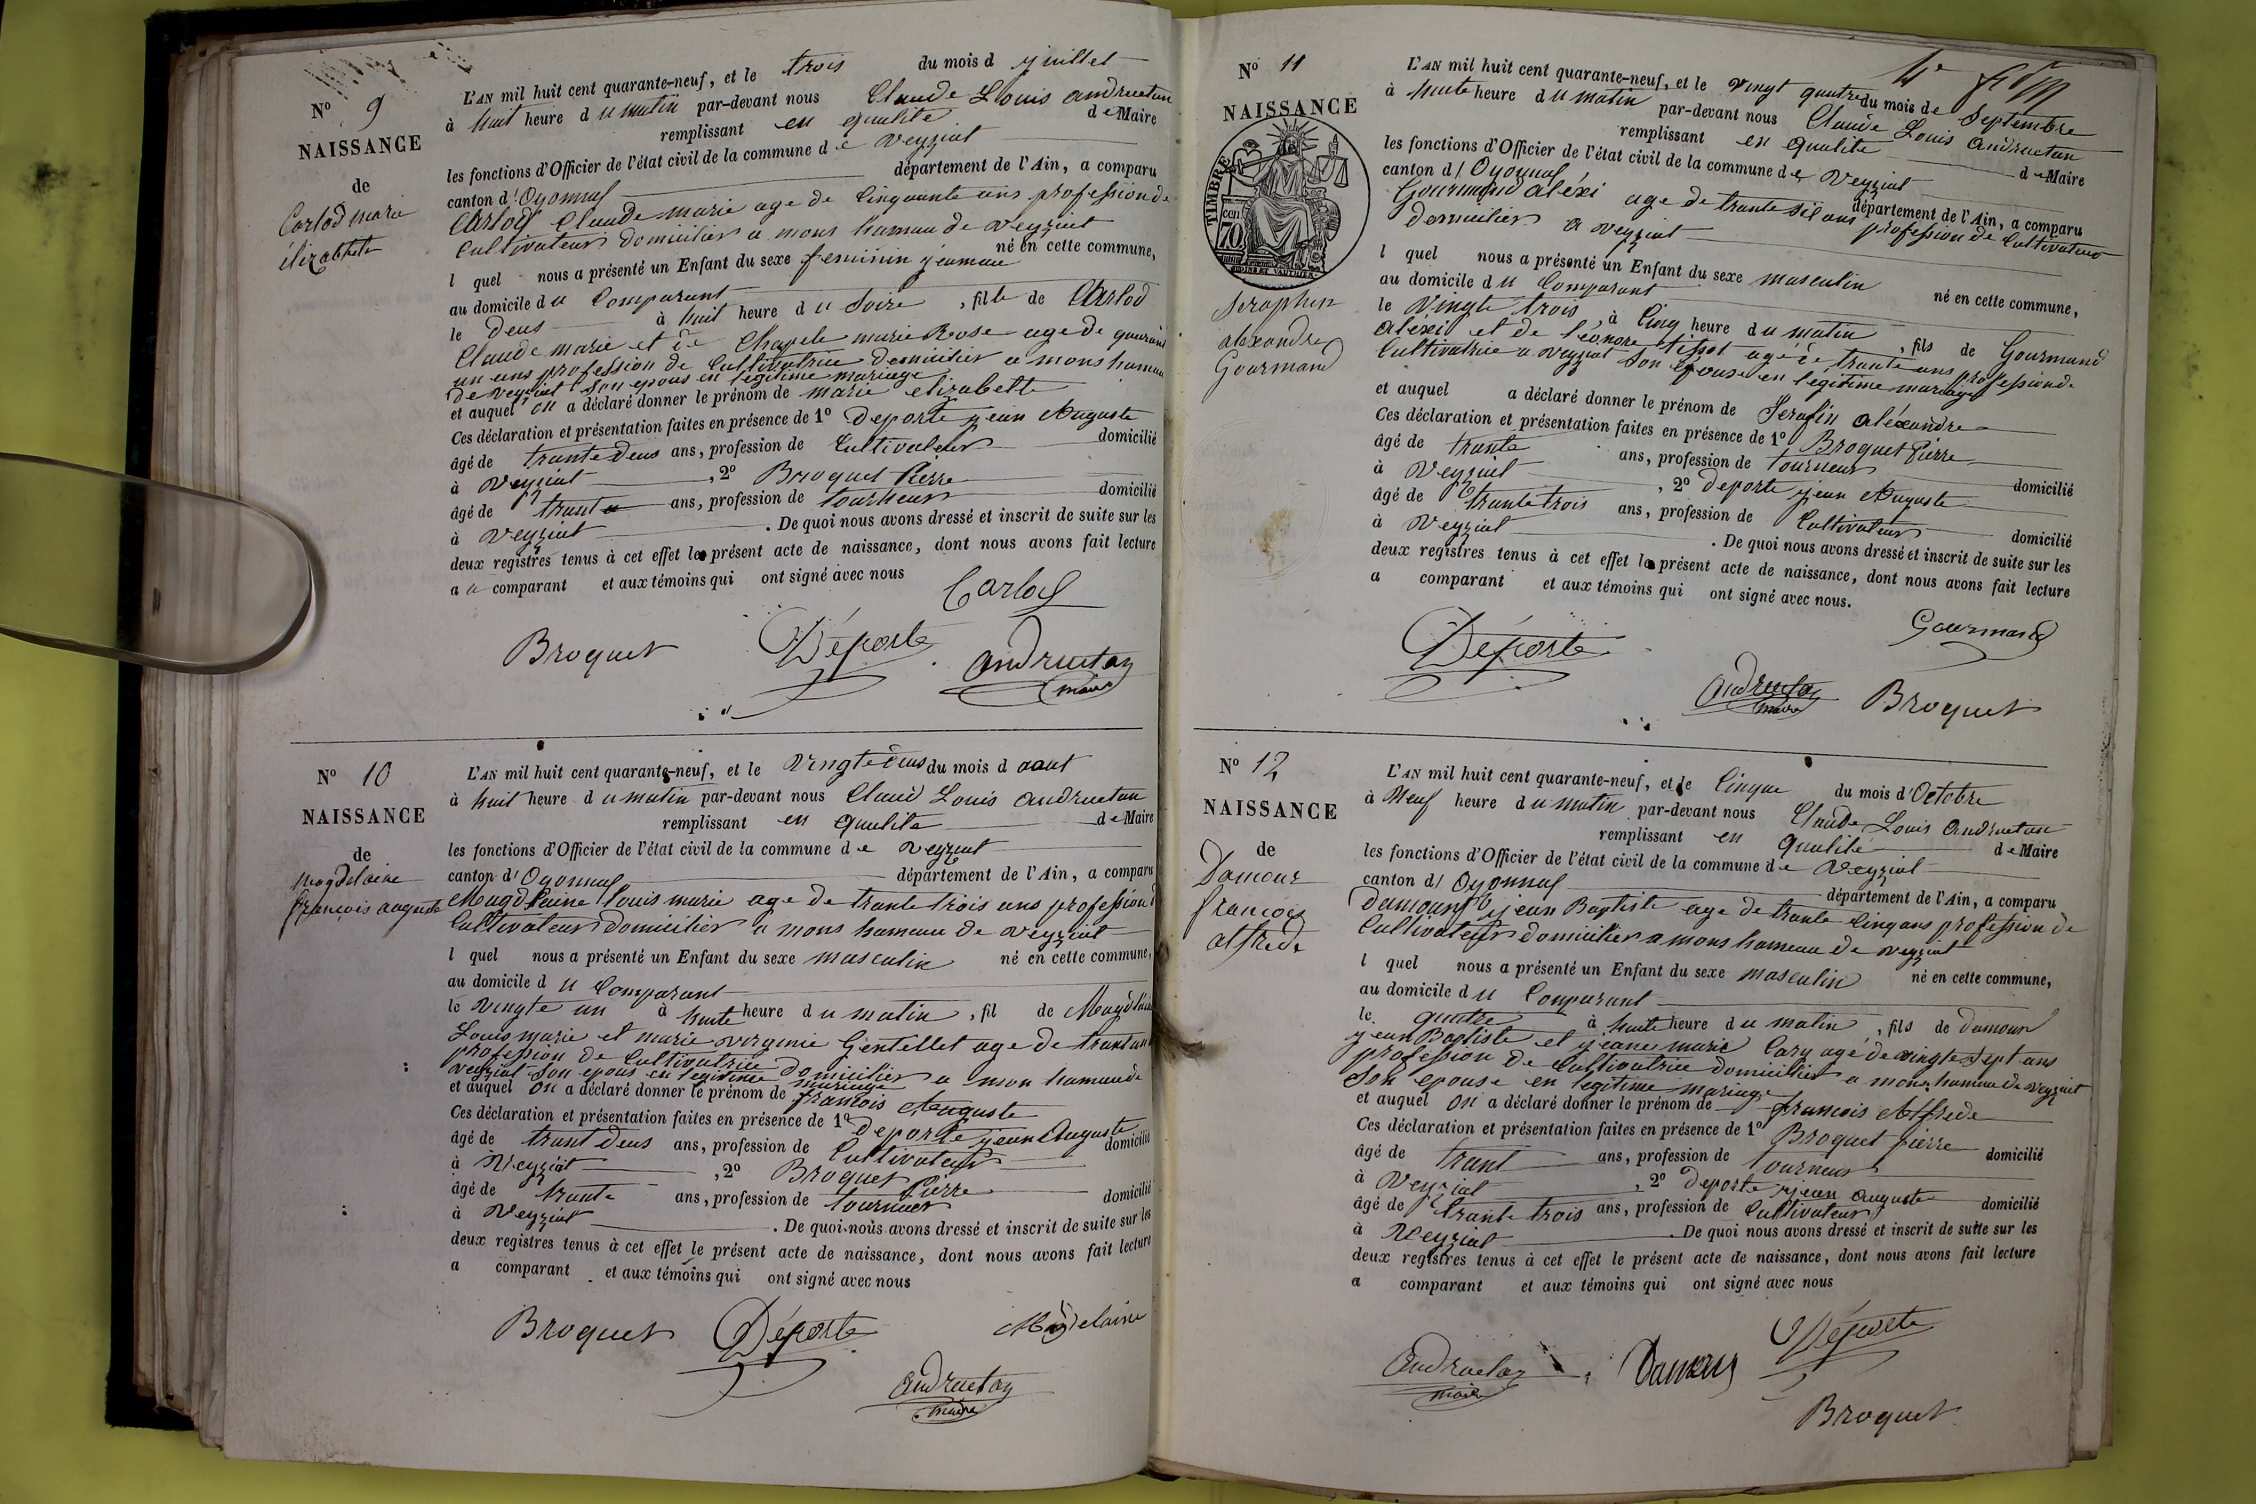 N° 9
NAISSANCE
de
Carlod marie
élizabhete
L'AN mil huit cent quarante-neuf, et le trois du mois d juillet
à huit heure du matin par-devant nous Claude Louis andruetan
remplissant en qualité de Maire
les fonctions d'Officier de l'état civil de la commune de veyziat
canton d'Oyonnas département de l'Ain, a comparu
Carlod Claude marie age de Cinquante ans profession de
Cultivateur domicilier a mons hameau de veyziat
l quel nous a présenté un Enfant du sexe feminin né en cette commune,
au domicile du Comparant
le deus à huit heure du Soire, fille de Carlod
Claude marie et de Chapele marie Rose age de quarante
un ans profession de Cultivatrice domicilier a mons hameau
de veyziat Son epous en legitime mariage
et auquel on a déclaré donner le prénom de marie elizabette
Ces déclaration et présentation faites en présence de 1° deporte jean Auguste
âgé de trante deus ans, profession de Cultivateur domicilié
à veyziat, 2° Broquet Pierre
âgé de trante ans, profession de tourneur domicilié
à veyziat. De quoi nous avons dressé et inscrit de suite sur les
deux registres tenus à cet effet le présent acte de naissance, dont nous avons fait lecture
a u comparant et aux témoins qui ont signé avec nous
Carlod
Broquet Déporte andruetan
maire
N° 10
NAISSANCE
de
magdelaine
françois auguste
L'AN mil huit cent quarante-neuf, et le vingte deus du mois d aout
à huit heure du matin par-devant nous Claud Louis andruetan
remplissant en qualité de Maire
les fonctions d'Officier de l'état civil de la commune de veyziat
canton d'Oyonnas département de l'Ain, a comparu
Magdelaine louis marie age de trante trois ans profession d
Cultivateur domicilier a mons hameau de veyziat
l quel nous a présenté un Enfant du sexe masculin né en cette commune,
au domicile du Comparant
le vingte un à huite heure du matin, fil de Magdelaine
Louis marie et marie virginie Gentellet age de trant an
profession de Cultivatrice domicilier a mon hamau de
veyziat Son epous en legitime mariage
et auquel on a déclaré donner le prénom de francois Auguste
Ces déclaration et présentation faites en présence de 1° deporte jean Auguste
âgé de trant deus ans, profession de Cultivateur domicilié
à Veyziat, 2° Broquet Pierre
âgé de trante ans, profession de tourneur domicilié
à Veyziat. De quoi nous avons dressé et inscrit de suite sur les
deux registres tenus à cet effet le présent acte de naissance, dont nous avons fait lecture
a comparant et aux témoins qui ont signé avec nous
Broquet Déporte Magdelaine
andruetan
maire
N° 11
NAISSANCE
TIMBRE
cen
70
Seraphin
alexandre
Gourmand
L'AN mil huit cent quarante-neuf, et le vingt quatre du mois de Septembre
à huite heure du matin par-devant nous Claude Louis andruetan
remplissant en qualité de Maire
les fonctions d'Officier de l'état civil de la commune de Veyziat
canton d'Oyonnas département de l'Ain, a comparu
Gourmand aléxi age de trante sis ans profession de Cultivateur
domicilier a veyziat
l quel nous a présenté un Enfant du sexe masculin né en cette commune,
au domicile du Comparant
le Vingte trois, à Cinq heure du matin, fils de Gourmand
aléxi et de léonore tissot agé de trante ans profession de
Cultivatrice a veyziat Son épouse en legitime mariage
et auquel a déclaré donner le prénom de Serafin aléxandre
Ces déclaration et présentation faites en présence de 1° Broquet Pierre
âgé de trante ans, profession de tourneur domicilié
à Veyziat, 2° deporte jean Auguste
âgé de trante trois ans, profession de Cultivateur domicilié
à Veyziat. De quoi nous avons dressé et inscrit de suite sur les
deux registres tenus à cet effet le présent acte de naissance, dont nous avons fait lecture
a comparant et aux témoins qui ont signé avec nous.
Gourmand
Déporte
andruetan Broquet
maire
N° 12
NAISSANCE
de
Damour
françois
alfrede
L'AN mil huit cent quarante-neuf, et le Cinque du mois d'Octobre
à Neuf heure du matin par-devant nous Claude Louis andruetan
remplissant en qualité de Maire
les fonctions d'Officier de l'état civil de la commune de Veyziat
canton d'Oyonnas département de l'Ain, a comparu
damour jean Baptiste age de trante Cinq ans profession de
Cultivateur domicilier a mons hameau de veyziat
l quel nous a présenté un Enfant du sexe masculin né en cette commune,
au domicile du Comparant
le quatre à huite heure du matin, fils de damour
jean Baptiste et jeane marie Cary agé de vingte Sept ans
profession de Cultivatrice domicilier a mons hameau de veyziat
Son epouse en legitime mariage
et auquel on a déclaré donner le prénom de francois Alfrede
Ces déclaration et présentation faites en présence de 1° Broquet pierre
âgé de trant ans, profession de tourneur domicilié
à Veyziat, 2° deporte jean auguste
âgé de trante trois ans, profession de Cultivateur domicilié
à Veyziat. De quoi nous avons dressé et inscrit de suite sur les
deux registres tenus à cet effet le présent acte de naissance, dont nous avons fait lecture
a comparant et aux témoins qui ont signé avec nous
andruetan Damour Déporte
maire
Broquet